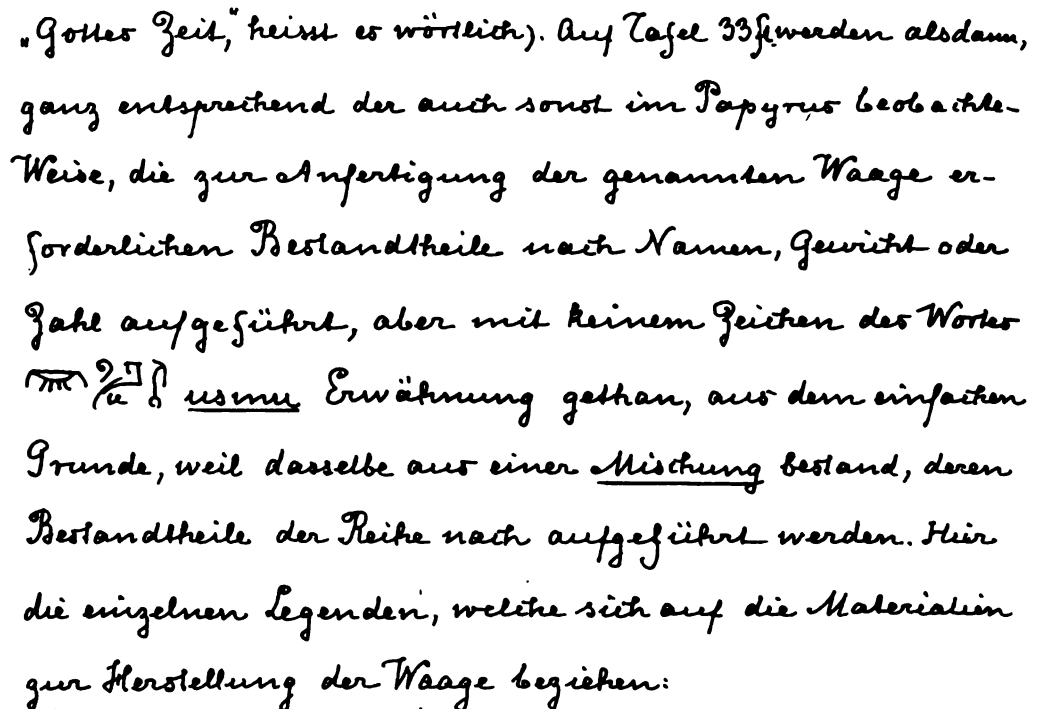 „Gottes Zeit," heisst es wörtlich). Auf Tafel 33fl. werden alsdann,
ganz entsprechend der auch sonst im Papyrus beobachte-
Weise, die zur Anfertigung der genannten Waage er-
forderlichen Bestandtheile nach Namen, Gewicht oder
Zahl aufgeführt, aber mit keinem Zeichen des Wortes
usmu Erwähnung gethan, aus dem einfachen
Grunde, weil dasselbe aus einer Mischung bestand, deren
Bestandtheile der Reihe nach aufgeführt werden. Hier
die einzelnen Legenden, welche sich auf die Materialien
zur Herstellung der Waage beziehen: